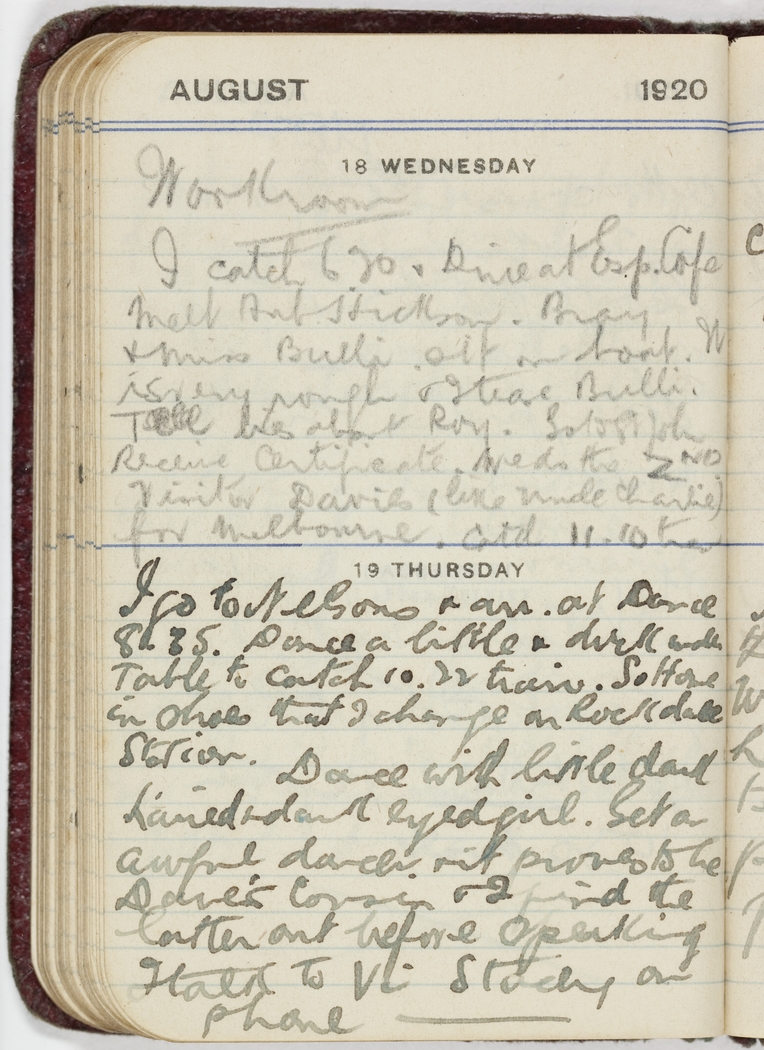 AUGUST 1920
18 WEDNESDAY
Workroom
I catch 6 20 & Dine at Esp. Cafe
Meet Hickson. Bray
& Miss Bulli sit on boat. W
is very rough & I tease Bulli.
Tell lies about Roy. St John
Receive Certificate. Meds the 2ND
Visitor Davies (like Uncle Charlie)
for Melbourne. Catch 11.10 tram
19 THURSDAY
I go to Nelsons & arr. at Dance
8.35. Dance a little & duck under
Table to catch 10.22 train. So Home
in shoes that I change on Rockdale
Station.
Dance with little dark
haired & dark eyed girl. Get an
awful dancer & it proves to be
Dave's Cousin & I find the
latter out before Speaking
I talk to Vi on
phone